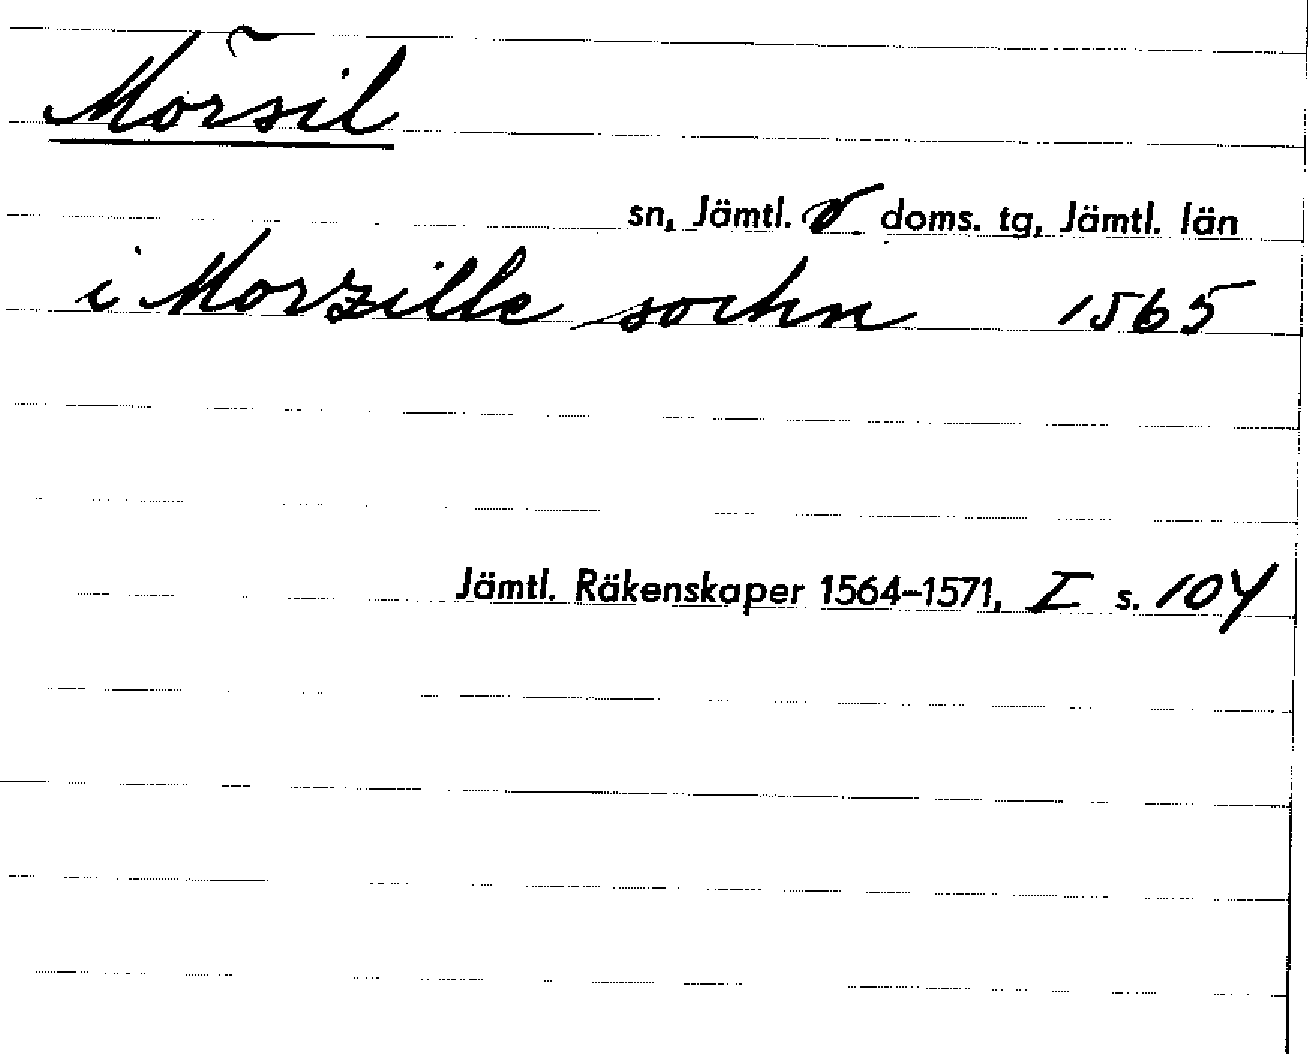 Mörsil
sn, Jämtl. v doms. tg, Jämtl. län
i Morzille sochn 1565
Jämtl. Räkenskaper 1564-1571, I s. 104